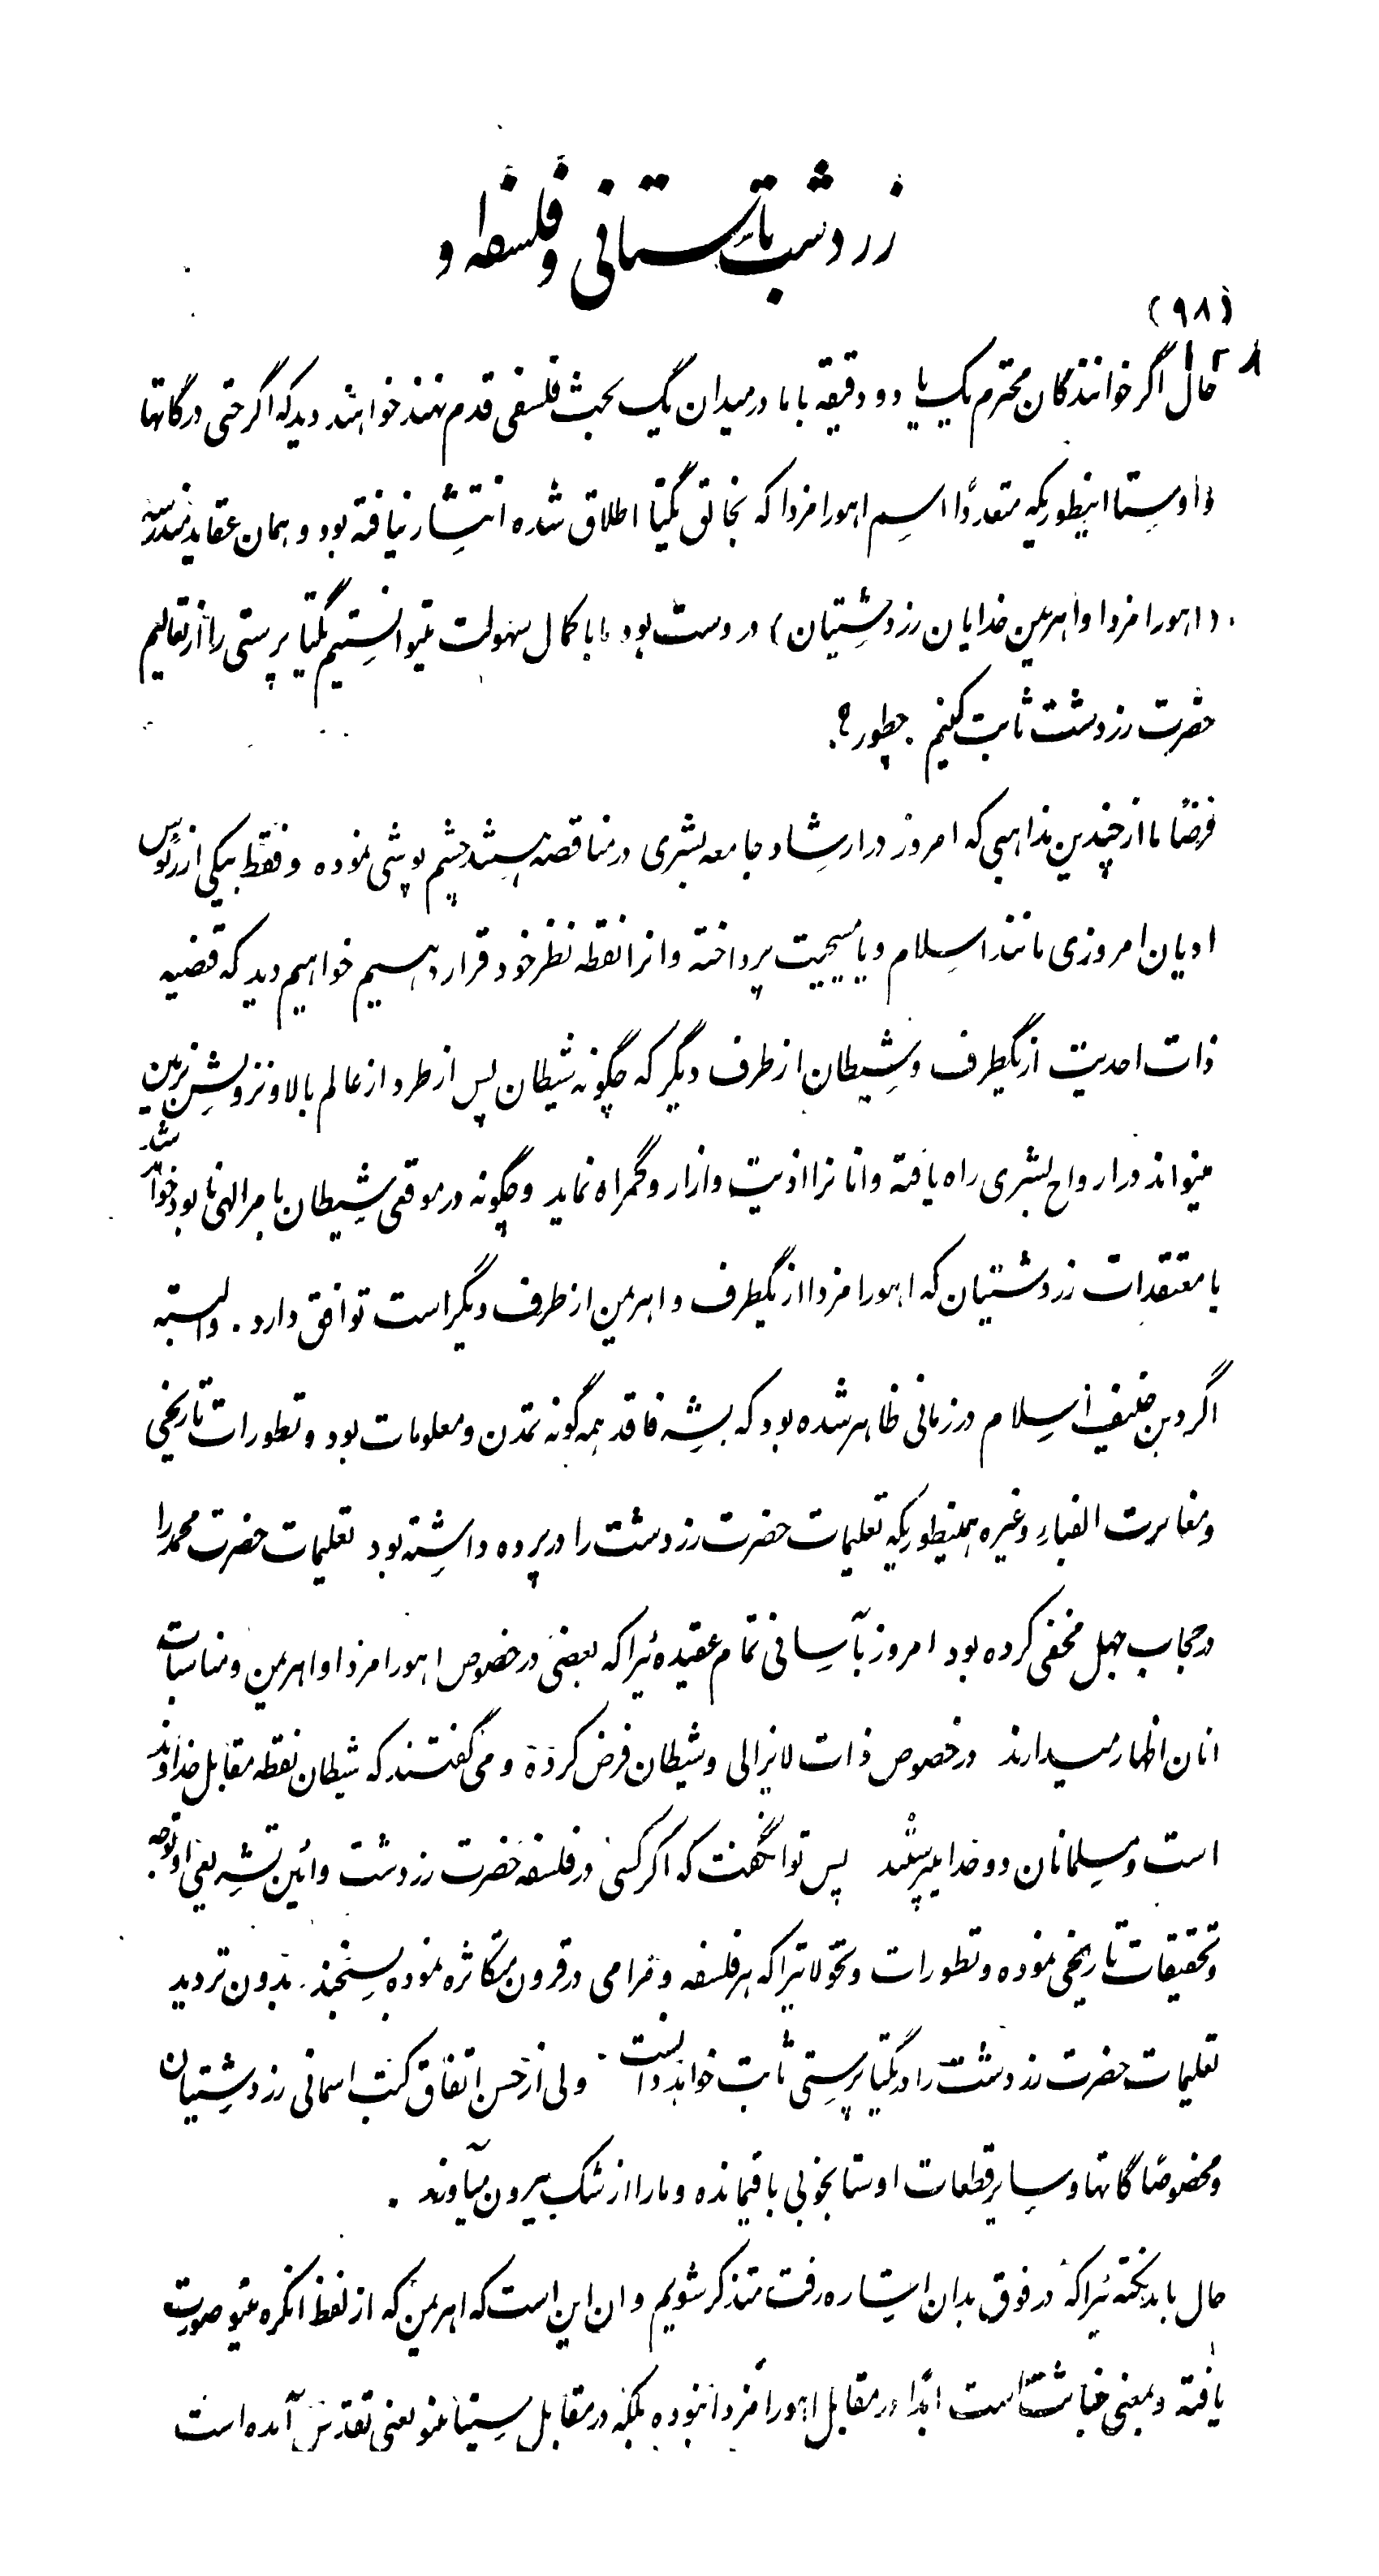 زردشت باستانی و فلسفه او
(۹۸)
حال اگر خوانندگان محترم یک یا دو دقیقه با ما در میدان یک بحث فلسفی قدم نهند خواهند دید که اگر حتی در گاتها
و اوستا اینطوریکه متعددًا اسم اهورا مزدا که بخالق یکتا اطلاق شده انتشار نیافته بود و همان عقاید
(اهورا مزدا و اهریمن خدایان زردشتیان) درست بود ما با کمال سهولت میتوانستیم یکتا پرستی را از تعالیم
حضرت زردشت ثابت کنیم . چطور ؟
فرضًا ما از چندین مذاهبی که امروز در ارشاد جامعه بشری در مناقصه هستند چشم پوشی نموده و فقط بیکی از رئوس
ادیان امروزی مانند اسلام و یا مسیحیت پرداخته و انرا نقطه نظر خود قرار دهیم خواهیم دید که قضیه
ذات احدیت از یکطرف و شیطان از طرف دیگر که چگونه شیطان پس از طرد از عالم بالا و نزولش بزمین
میتواند در ارواح بشری راه یافته و انانرا اذیت و ازار و گمراه نماید و چگونه در موقعی شیطان بامر الهی نابود خواهد شد
با معتقدات زردشتیان که اهورا مزدا از یکطرف و اهریمن از طرف دیگر است توافق دارد . والبته
اگر دین حنیف اسلام در زمانی ظاهر شده بود که بشر فاقد همه گونه تمدن و معلومات بود و تطورات تاریخی
و مغایرت الفباء و غیره همینطوریکه تعلیمات حضرت زردشت را در پرده داشته بود تعلیمات حضرت محمد را
در حجاب جهل مخفی کرده بود امروز بآسانی تمام عقیدهٔ را که بعضی در خصوص اهورا مزدا و اهریمن و مناسبات
انان اظهار میدارند در خصوص ذات لایزالی و شیطان فرض کرده و می گفتند که شیطان نقطه مقابل خداوند
است و مسلمانان دو خدا میپرستند پس توان گفت که اگر کسی در فلسفه حضرت زردشت و ائین تشریعی او توجه
و تحقیقات تاریخی نموده و تطورات و تحولاتیرا که هر فلسفه و مرامی در قرون متکاثره نموده بسنجند . بدون تردید
تعلیمات حضرت زردشت را در یکتا پرستی ثابت خواهد دانست . ولی از حسن اتفاق کتب اسمانی زردشتیان
و مخصوصًا گاتها و سایر قطعات اوستا بخوبی باقیمانده و ما را از شک بیرون میآورند .
حال باید نکتهٔ را که در فوق بدان اشاره رفت متذکر شویم و ان این است که اهریمن که از لفظ انگره مینو صورت
یافته و بمعنی خباثت است ابدًا در مقابل اهورا مزدا نبوده بلکه در مقابل سپنتا مینو یعنی تقدس آمده است